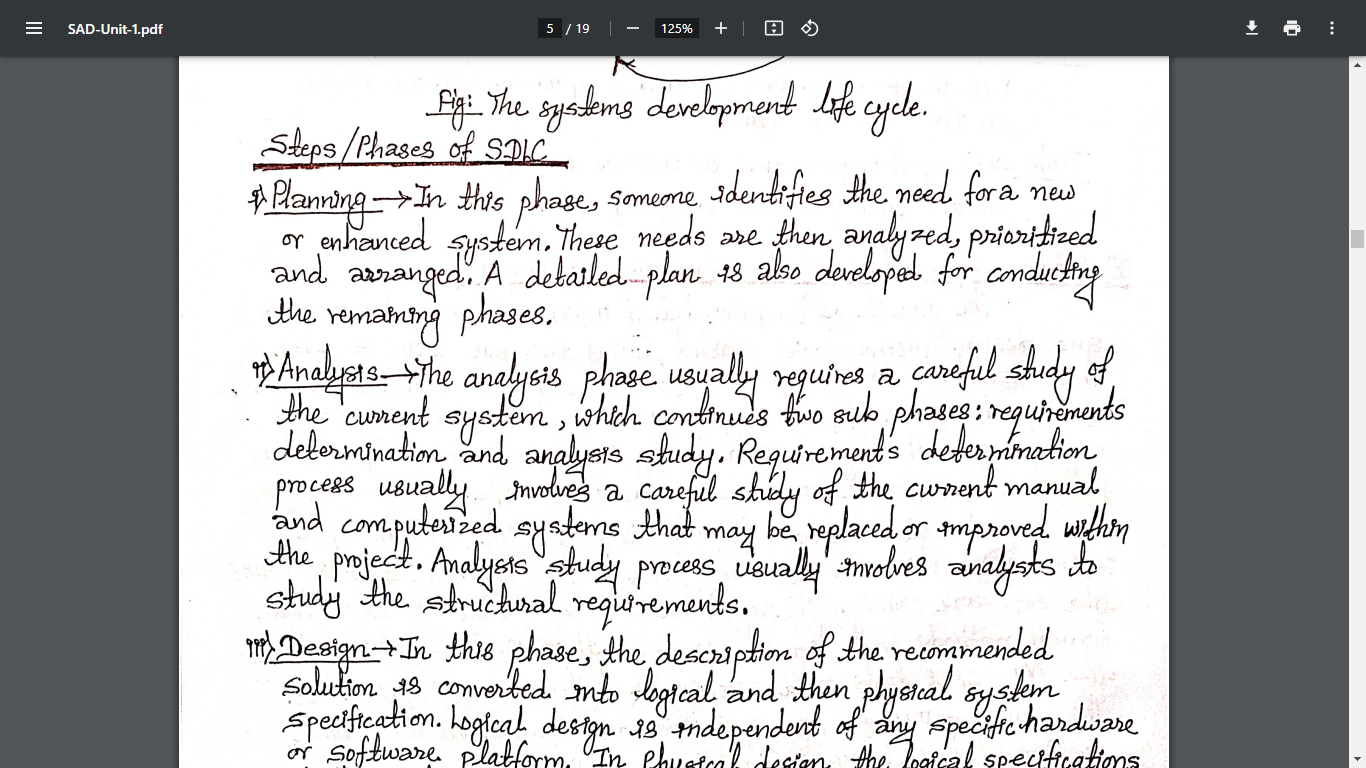 SAD-Unit-1.pdf
5 / 19
125%
Fig: The systems development life cycle.
Steps/Phases of SDLC
i) Planning → In this phase, someone identifies the need for a new
or enhanced system. These needs are then analyzed, prioritized
and arranged. A detailed plan is also developed for conducting
the remaining phases.
ii) Analysis → The analysis phase usually requires a careful study of
the current system, which continues two sub phases: requirements
determination and analysis study. Requirements determination
process usually involves a careful study of the current manual
and computerized systems that may be replaced or improved within
the project. Analysis study process usually involves analysts to
study the structural requirements.
iii) Design → In this phase, the description of the recommended
solution is converted into logical and then physical system
specification. Logical design is independent of any specific hardware
or software platform. In Physical design, the logical specifications